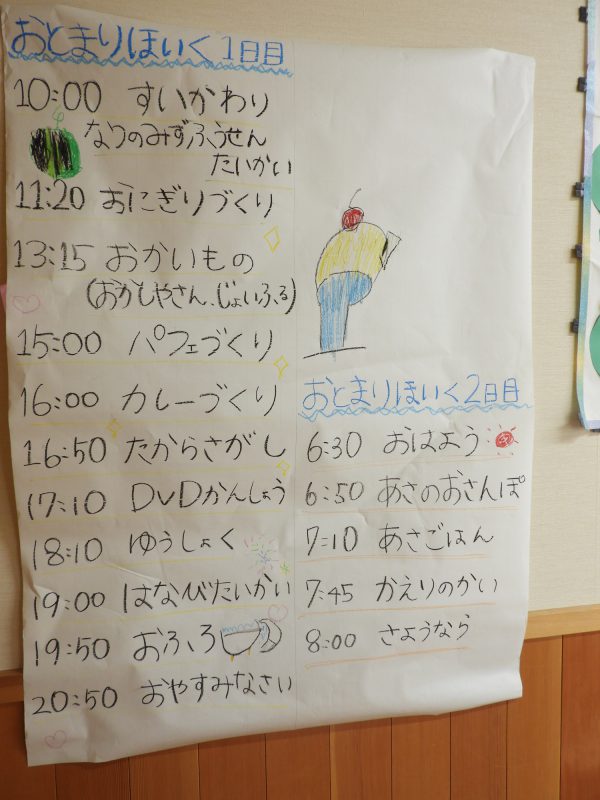 おとまりほいく1日目
10:00 すいかわり
なつのみずふうせん
たいかい
11:20 おにぎりづくり
13:15 おかいもの
(おかしやさん、じょいふる)
15:00 パフェづくり
16:00 カレーづくり
16:50 たからさがし
17:10 DVDかんしょう
18:10 ゆうしょく
19:00 はなびたいかい
19:50 おふろ
20:50 おやすみなさい
おとまりほいく2日目
6:30 おはよう
6:50 あさのおさんぽ
7:10 あさごはん
7:45 かえりのかい
8:00 さようなら